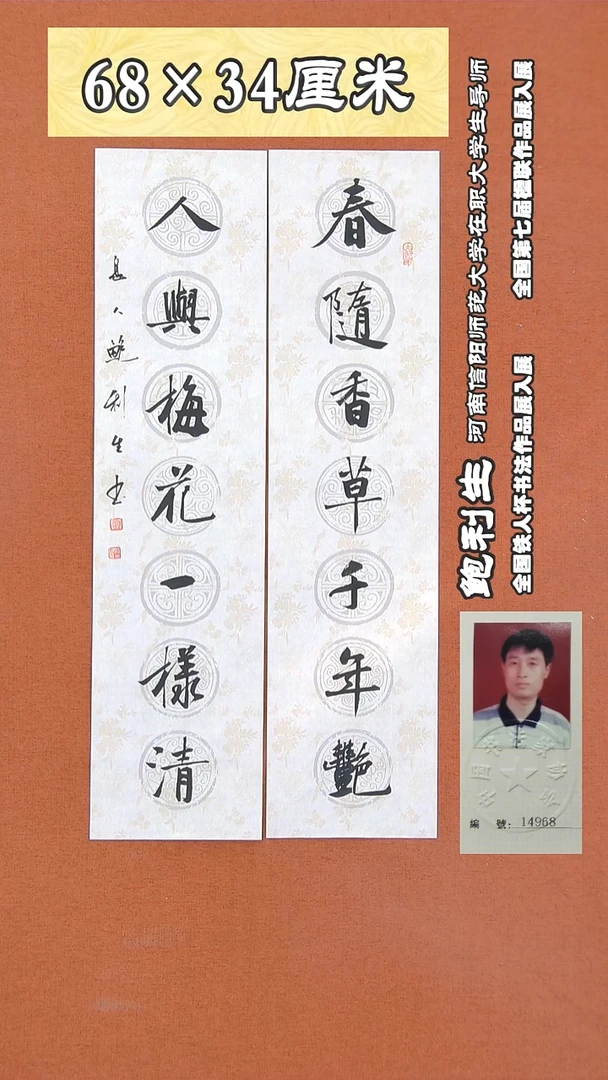 68×34厘米
春隨香草千年艷
人與梅花一樣清
息人鲍利生书
鲍利生 河南信阳师范大学在职大学生导师
全国第七届楹联作品展入展
全国铁人杯书法作品展入展
編 號：14968